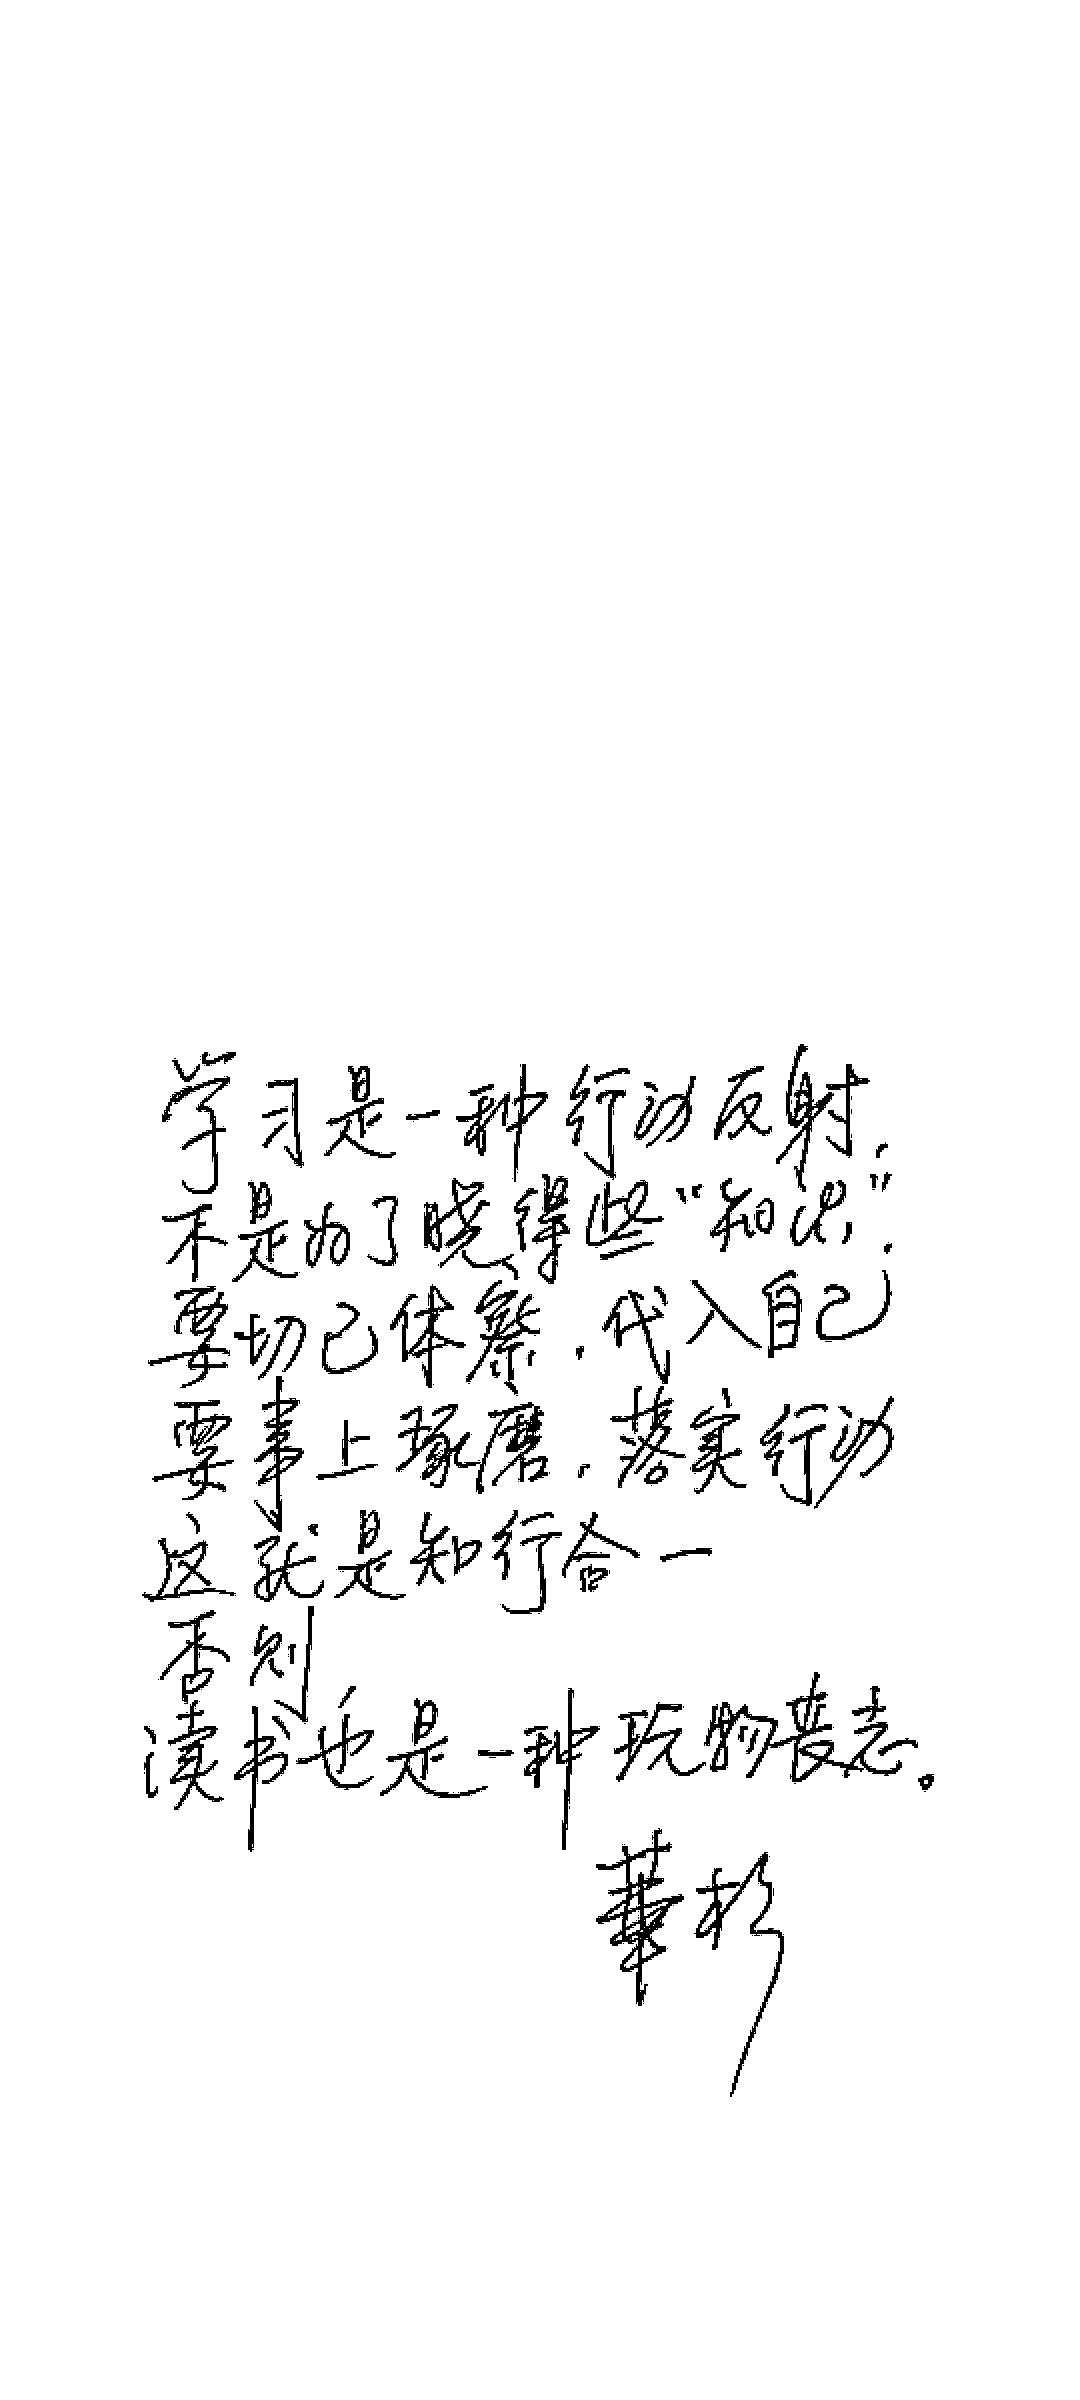 学习是一种行动反射，
不是为了晓得些“知识”，
要切己体察，代入自己
要事上琢磨，落实行动
这就是知行合一
否则
读书也是一种玩物丧志。
華杉